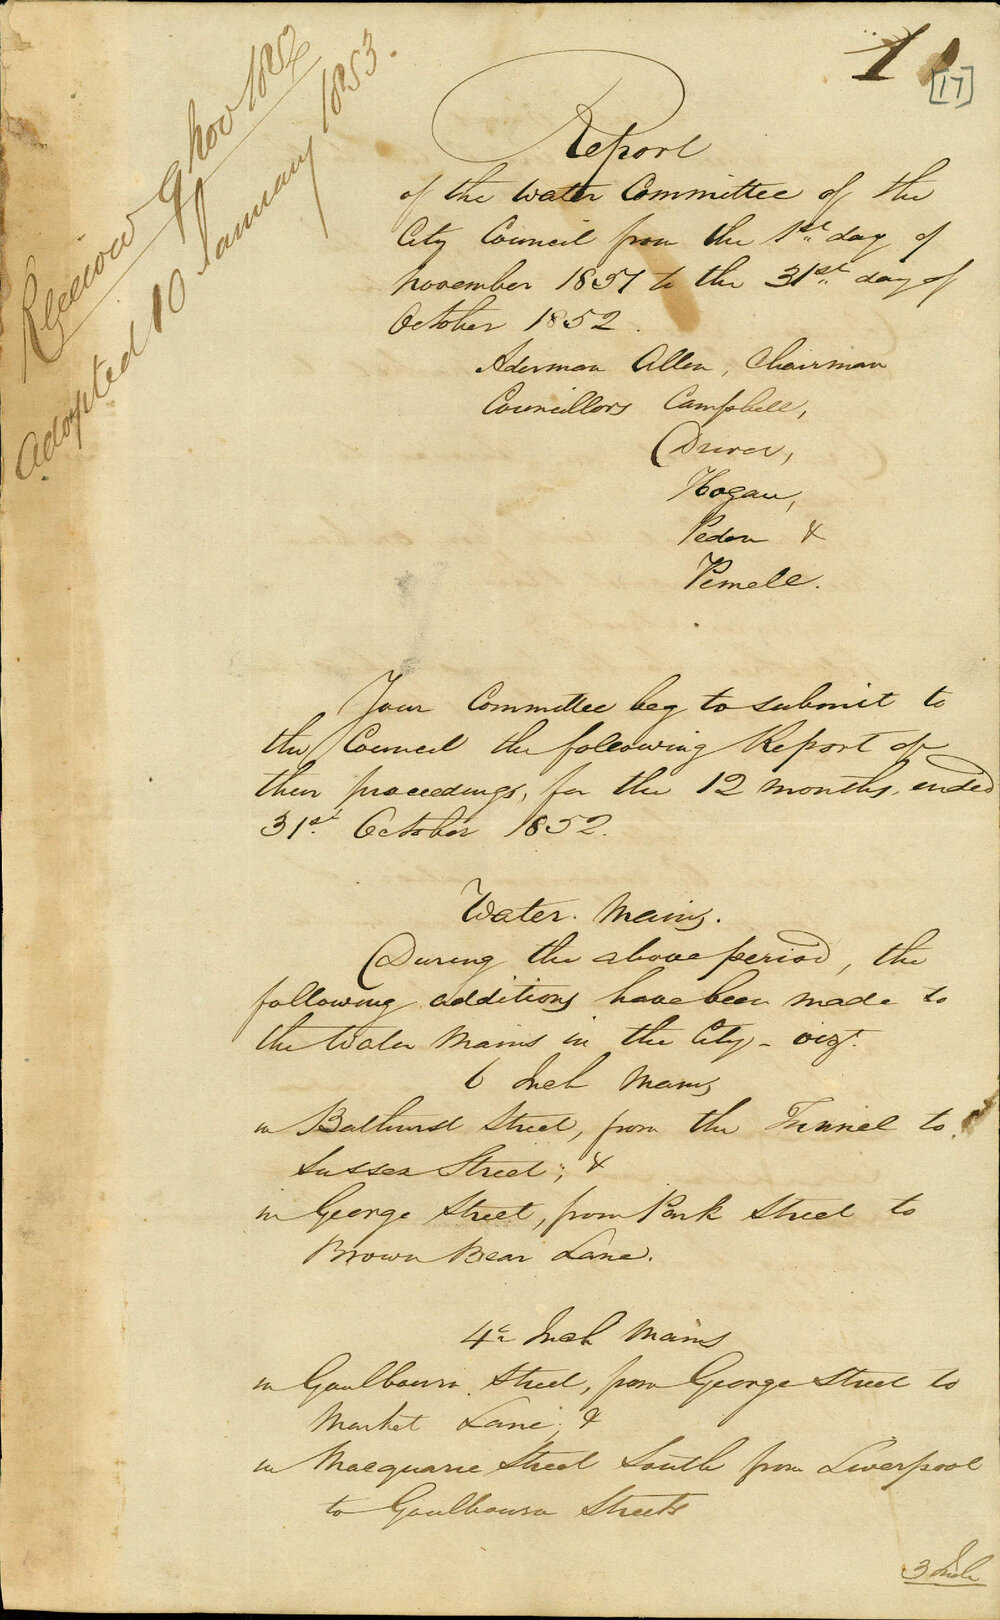 Received 9 Nov 1852
Adopted 10 January 1853.
1
[17]
Report
of the Water Committee of the
City Council from the 1st day of
November 1851 to the 31st day of
October 1852.
Aderman Allen, Chairman
Councillors Campbell,
Driver,
Hogan,
Pedon &
Pemell.
Your Committee beg to submit to
the Council the following Report of
their proceedings, for the 12 months, ended
31st October 1852.
Water Mains.
During the above period, the
following additions have been made to
the Water Mains in the City - vizt.
6 Inch Mains
in Bathurst Street, from the Tunnel to
Sussex Street; &
in George Street, from Park Street to
Brown Bear Lane.
4 Inch Mains
in Goulbourn Street, from George Street to
Market Lane; &
in Macquarie Street South from Liverpool
to Goulbourn Streets
3 Inch